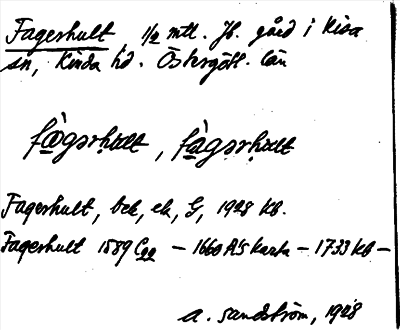 Fagerhult 1/2 mtl. Jb. gård i Kisa
sn, Kinda hd. Östergötl. län
fàgərhult, fàgərhult
Fagerhult, bek, ek, G, 1928 kb.
Fagerhult 1589 C22 – 1660 ÄJ karta – 1733 kb –
A. Sandström, 1928